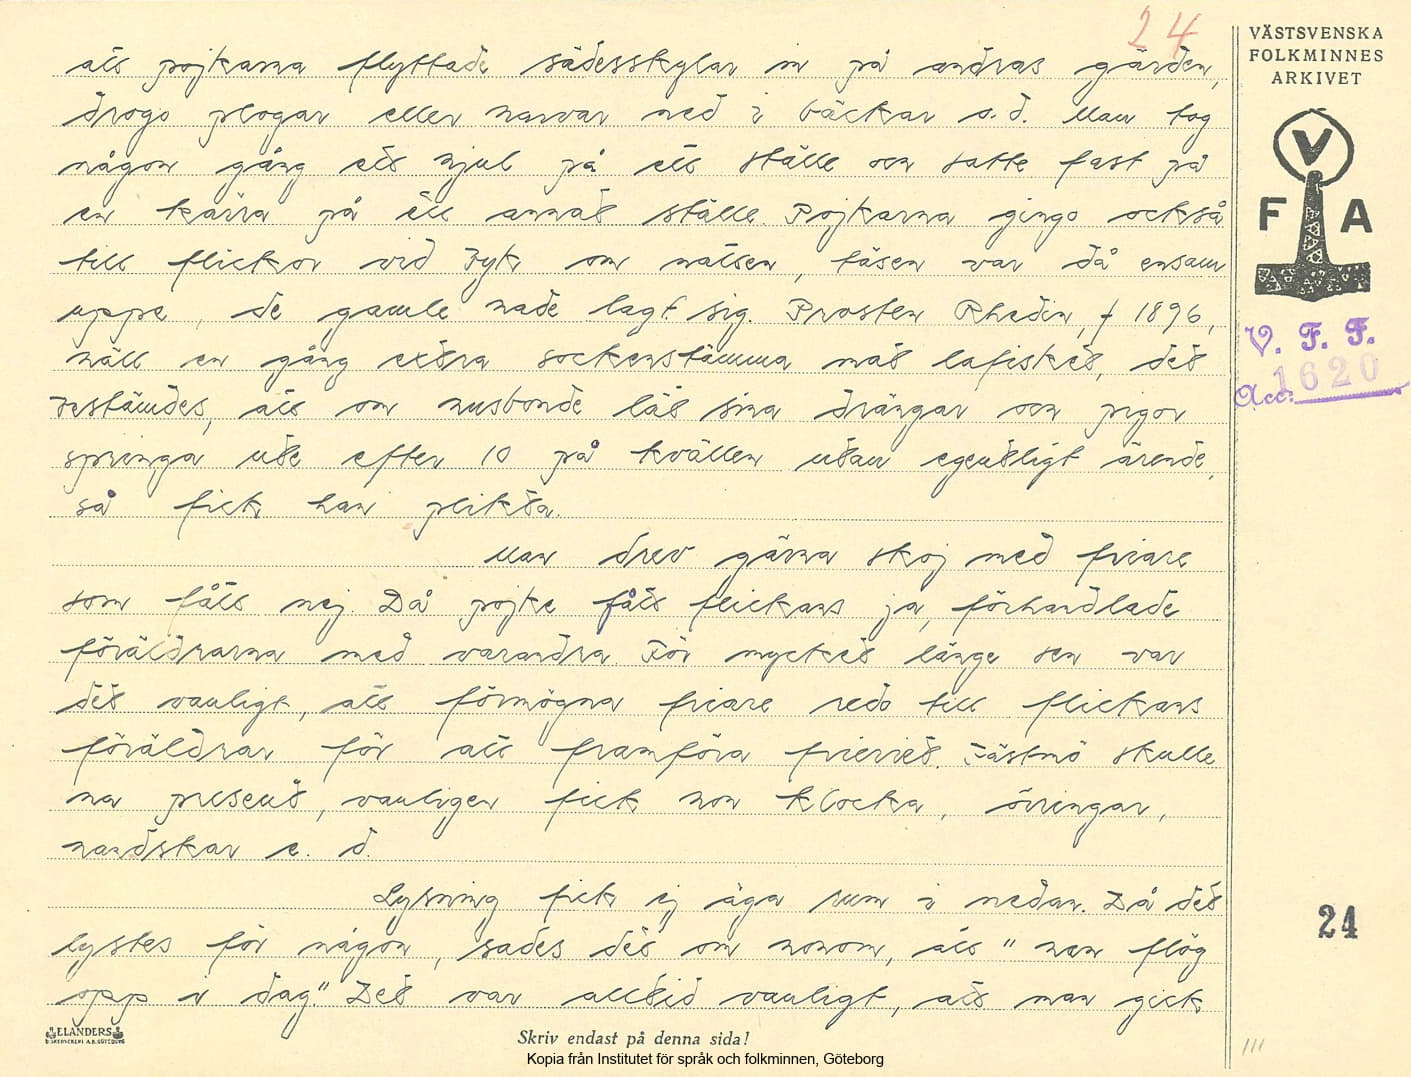 24
VÄSTSVENSKA
FOLKMINNES
ARKIVET
V
F A
V. F. F.
Acc: 1620
att pojkarna flyttade sädesskylar in på andras gärden,
drogo plogar eller harvar ned i bäckar o.d. Man tog
någon gång ett hjul på ett ställe och satte fast på
en kärra på ett annat ställe. Pojkarna gingo också
till flickor vid byk om natten, tösen var då ensam
uppe, de gamle hade lagt sig. Prosten Rhedin, † 1896,
höll en gång extra sockenstämma mot lafisket, det
bestämdes, att om husbonde lät sina drängar och pigor
springa ute efter 10 på kvällen utan egentligt ärende,
så fick han plikta.
Man drev gärna skoj med friare
som fått nej. Då pojke fått flickans ja, förhandlade
föräldrarna med varandra. För mycket länge sen var
det vanligt, att förmögna friare redo till flickans
föräldrar för att framföra frieriet. Fästmö skulle
ha present, vanligen fick hon klocka, örringar,
handskar e. d.
Lysning fick ej äga rum i nedan. Då det
lystes för någon, sades det om honom, att "han flög
opp i dag." Det var alltid vanligt, att man gick
24
ELANDERS
BOKTRYCKERI A.B. GÖTEBORG
Skriv endast på denna sida!
Kopia från Institutet för språk och folkminnen, Göteborg